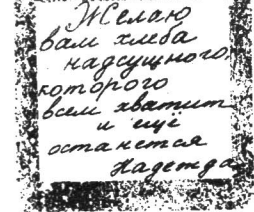 Желаю
вам хлеба
надсущного,
которого
всем хватит
и ещё
останется
Надежда